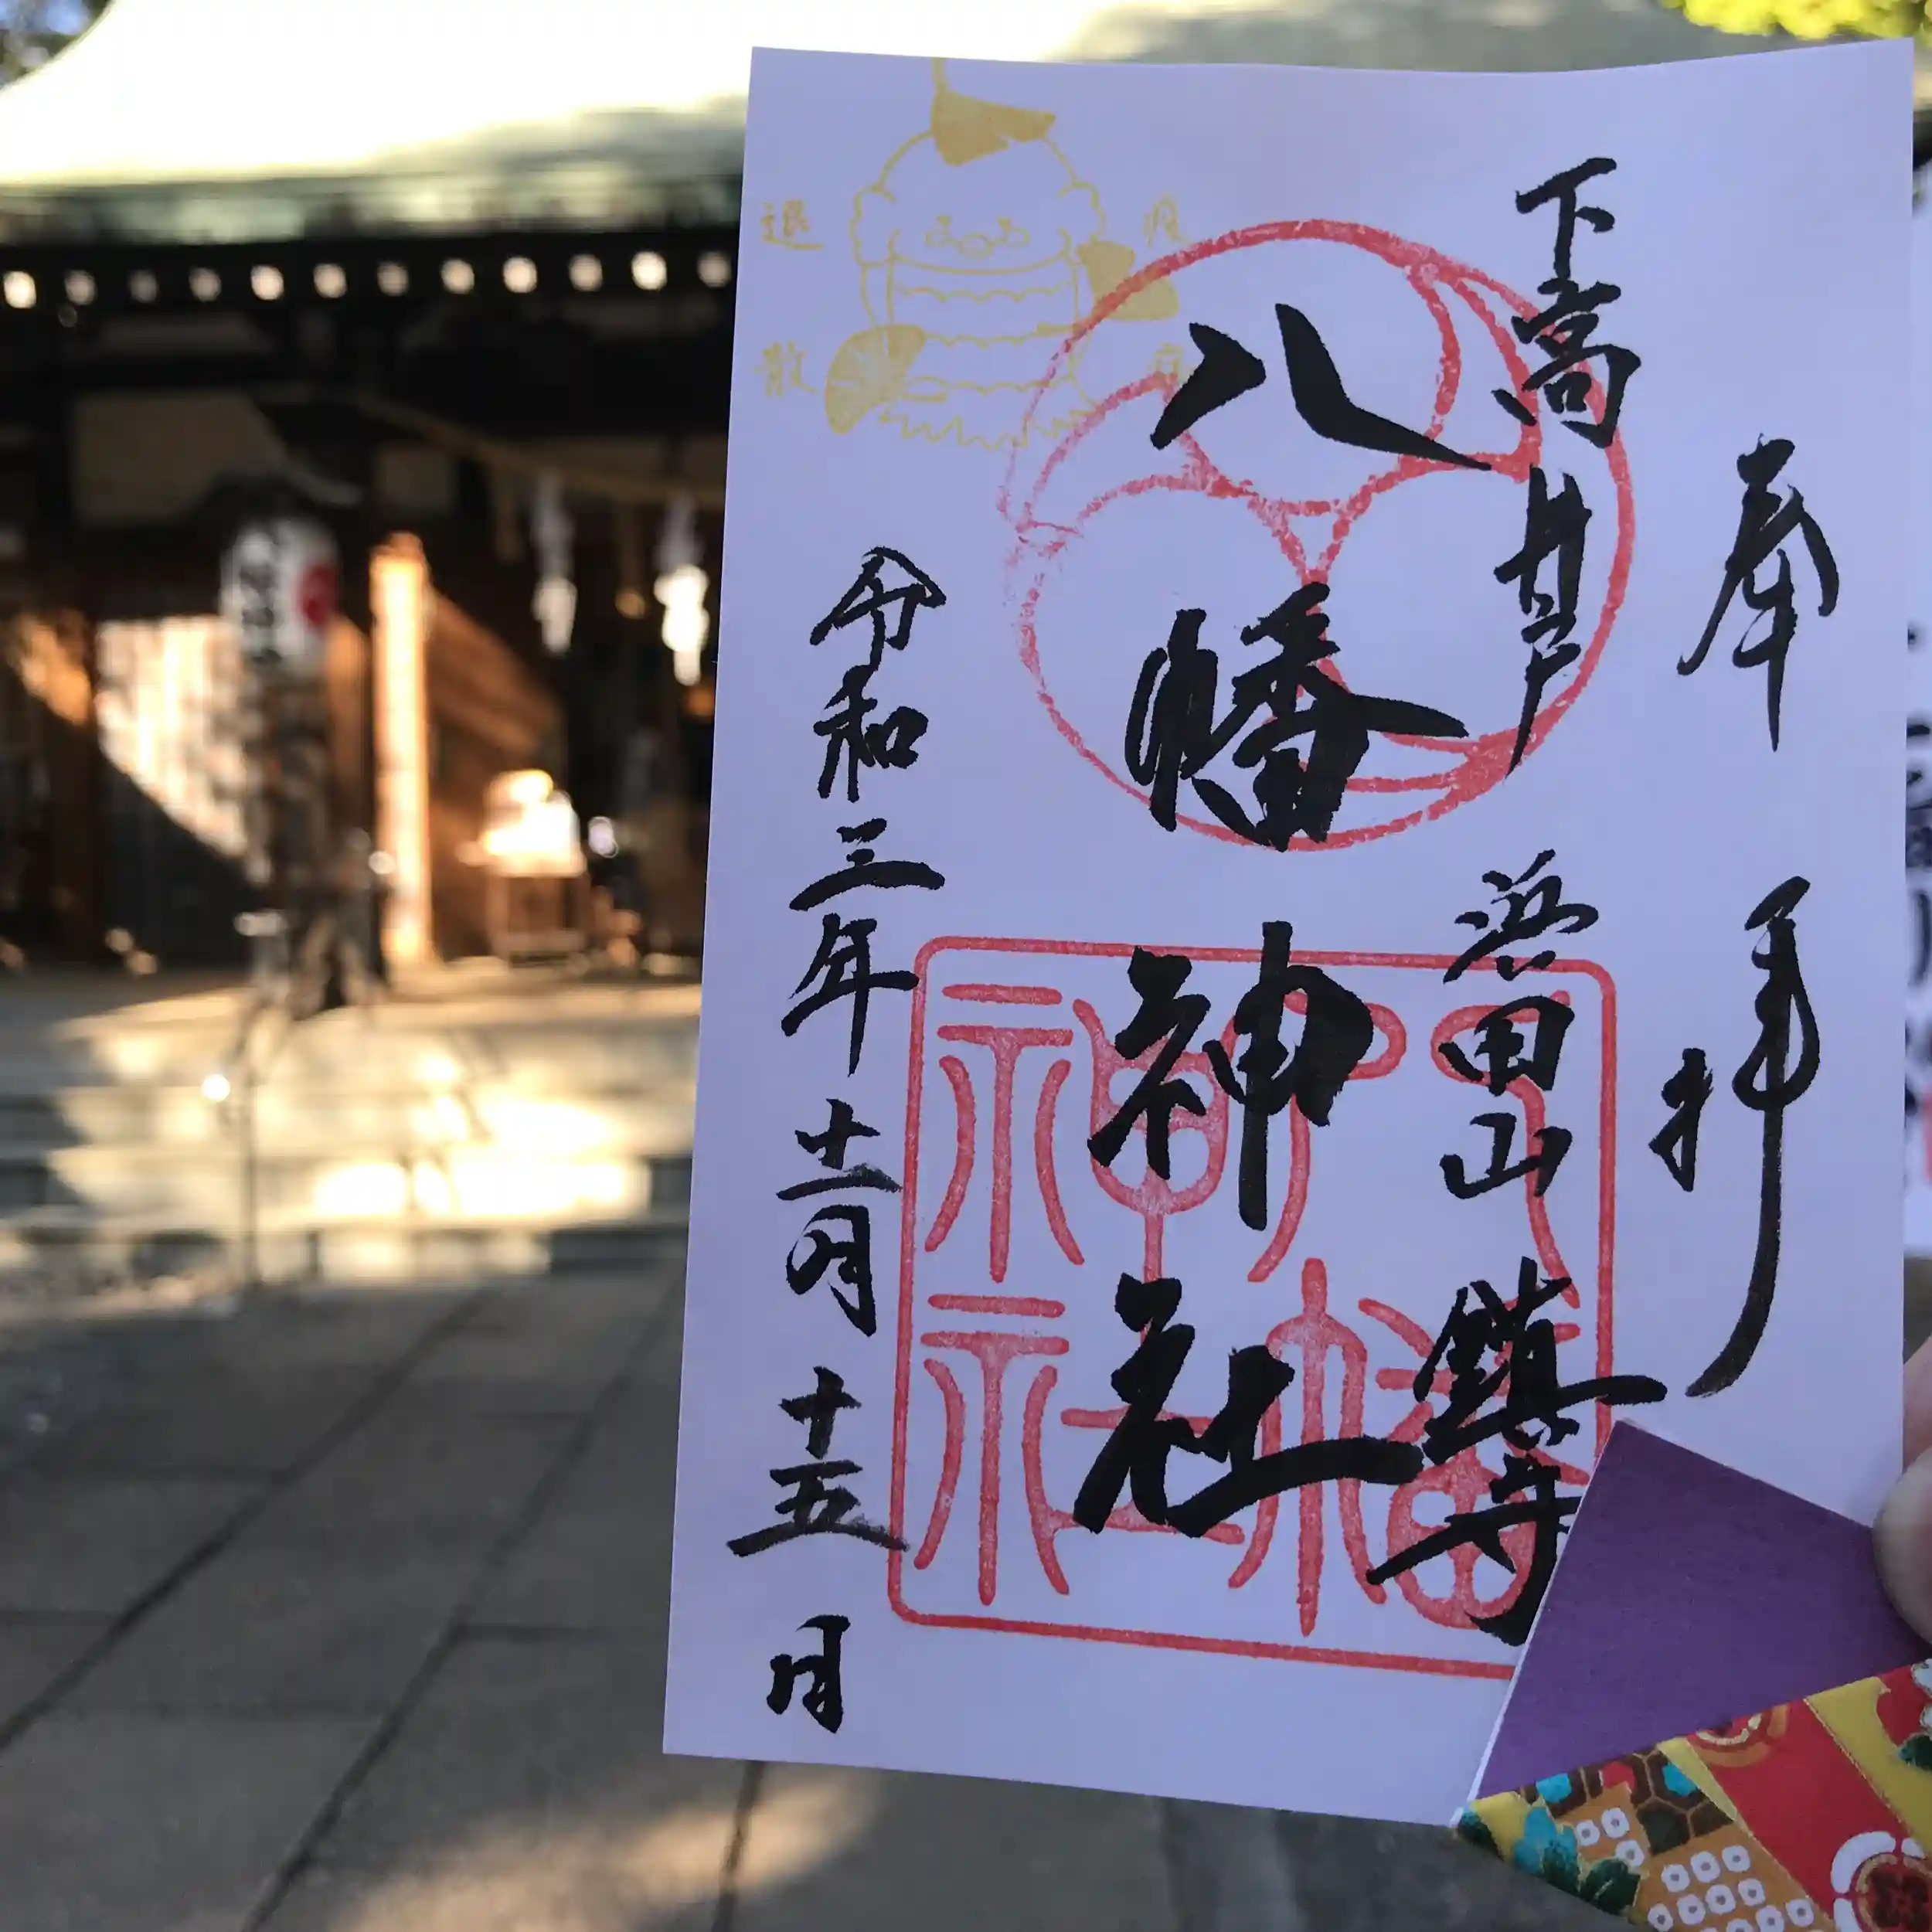 奉拝
下高井戸
浜田山鎮守
八幡神社
八幡神社
令和三年十二月十五日
疫病
退散